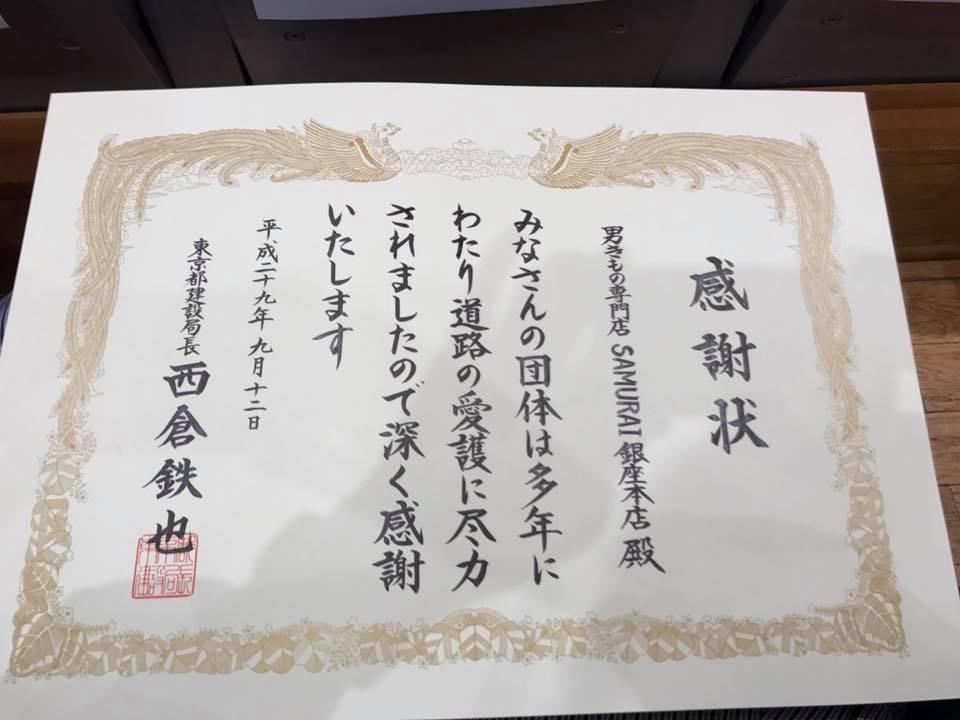 感謝状
男きもの専門店 SAMURAI 銀座本店 殿
みなさんの団体は多年に
わたり道路の愛護に尽力
されましたので深く感謝
いたします
平成二十九年九月十二日
東京都建設局長 西倉鉄也